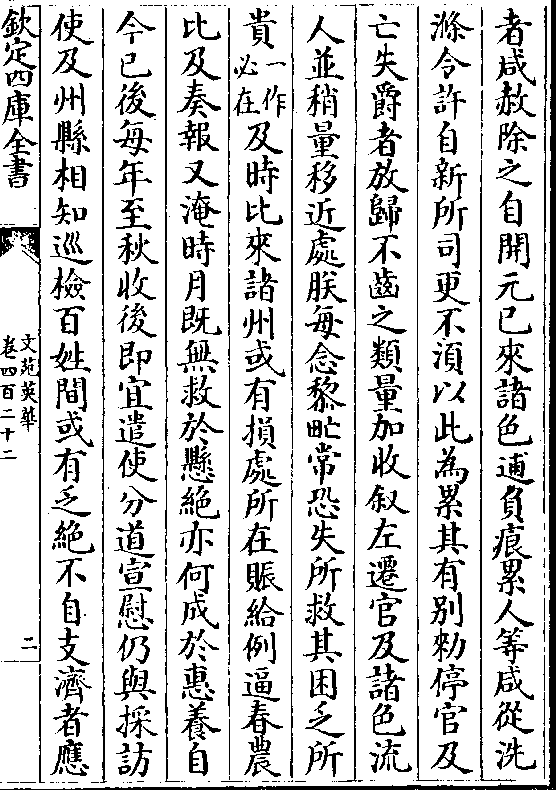 者咸赦除之自開元已來諸色逋負痕累人等咸從洗
滌令許自新所司更不須以此為累其有别勑停官及
亡失爵者放歸不齒之類量加收叙左遷官及諸色流
人並稍量移近處朕每念黎甿常恐失所救其困乏所
貴一作必在及時比來諸州或有損處所在賑給例逼春農
比及奏報又淹時月既無救於懸絶亦何成於惠養自
今已後每年至秋收後即宜遣使分道宣慰仍與採訪
使及州縣相知巡檢百姓間或有乏絶不自支濟者應
欽定四庫全書
文苑英華
卷四百二十二
二